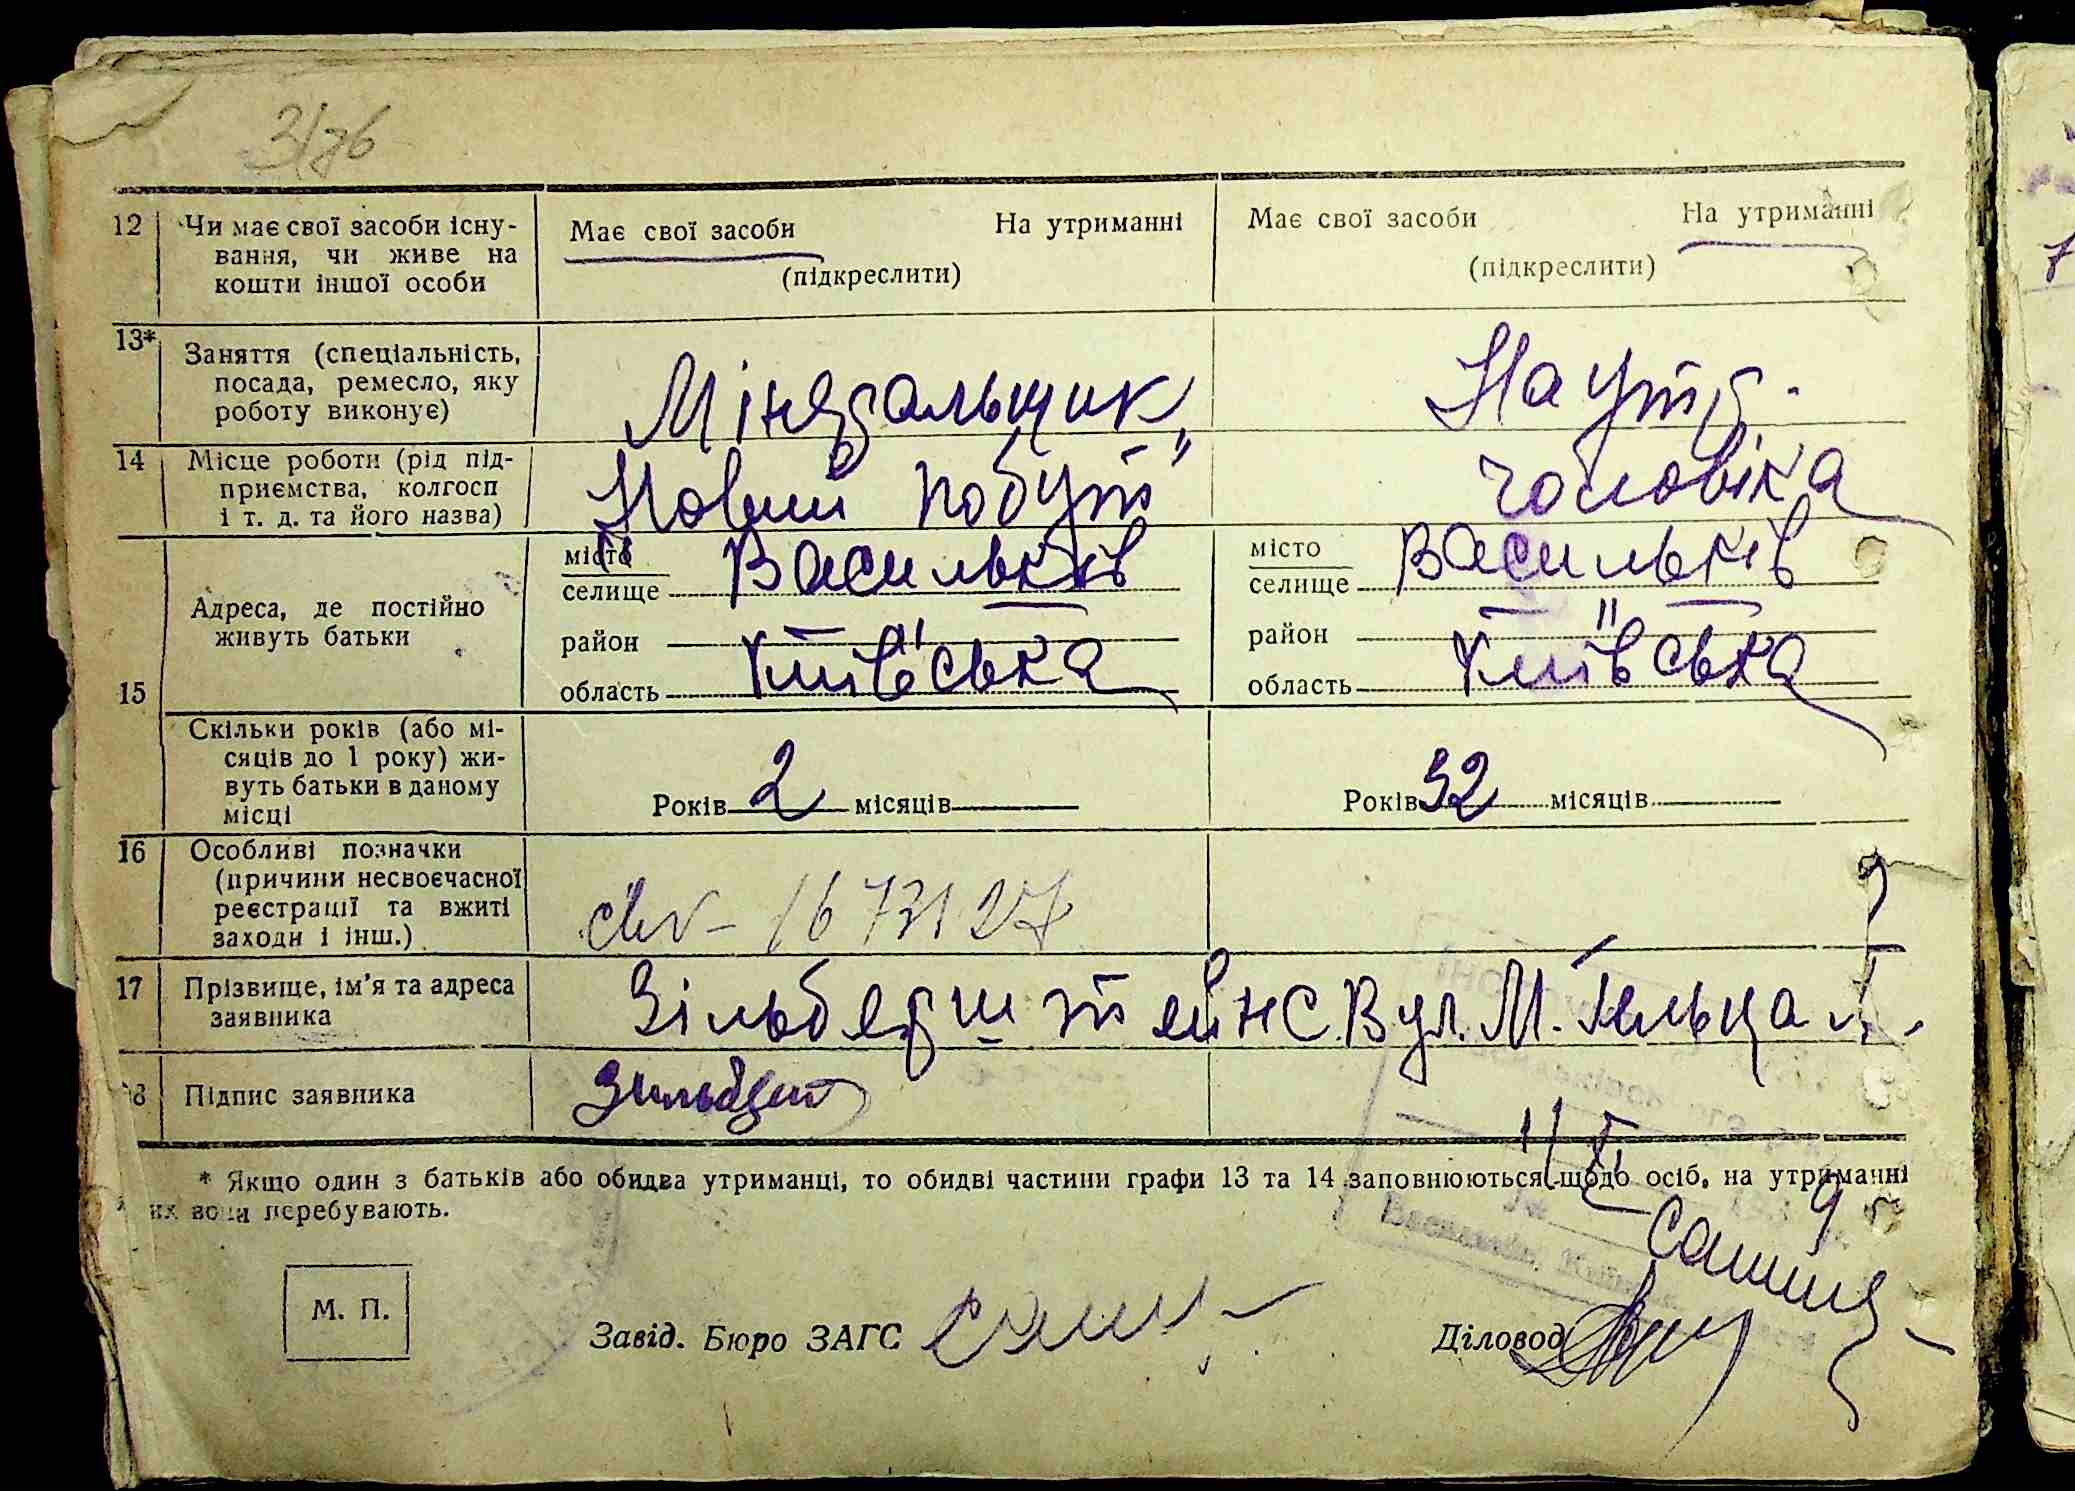 12 Чи має свої засоби існу-
вання, чи живе на
кошти іншої особи
Має свої засоби На утриманні
(підкреслити)
Має свої засоби На утриманні
(підкреслити)
13* Заняття (спеціальність,
посада, ремесло, яку
роботу виконує)
Мінеральщик
На утр.
14 Місце роботи (рід під-
приємства, колгосп
і т. д. та його назва)
"Новий побут"
чоловіка
15 Адреса, де постійно
живуть батьки
місто Васильків
селище
район "
область Київська
місто Васильків
селище
район "
область Київська
Скільки років (або мі-
сяців до 1 року) жи-
вуть батьки в даному
місці
Років 2 місяців
Років 32 місяців
16 Особливі позначки
(причини несвоєчасної
реєстрації та вжиті
заходи і інш.)
17 Прізвище, ім'я та адреса
заявника
Зільберштейн С. Вул. М.
18 Підпис заявника
* Якщо один з батьків або обидва утриманці, то обидві частини графи 13 та 14 заповнюються щодо осіб, на утриманні
их вони перебувають.
М. П.
Завід. Бюро ЗАГС
Діловод